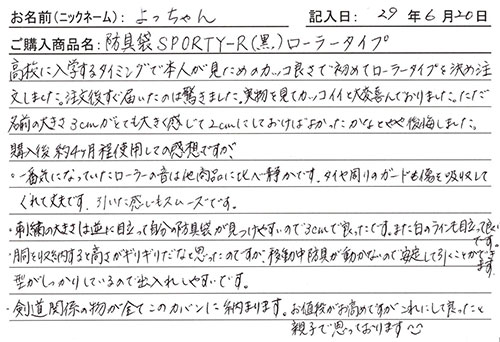 お名前(ニックネーム): よっちゃん 記入日: 29年6月20日
ご購入商品名: 防具袋SPORTY-R(黒)ローラータイプ
高校に入学するタイミングで本人が見ためのカッコ良さで初めてローラータイプを決め注
文しました。注文後すぐ届いたのは驚きました。実物を見てカッコイイと大喜んでおりました。ただ
名前の大きさ3cmがとても大きく感じて2cmにしておけばよかったかなとやや後悔しました。
購入後約4ヶ月程使用しての感想ですが、
・一番気になっていたローラーの音は他商品に比べ静かです。タイヤ周りのガードも傷を吸収して
くれて丈夫です。引いた感じもスムーズです。
・刺繍の大きさは逆に目立って自分の防具袋が見つけやすいので3cmで良かったです。また白のラインも目立って良い
です。
・胴を収納すると高さがギリギリだなと思ったのですが、移動中防具が動かないので安定して引くことができ
ます。
型がしっかりしているので出入れしやすいです。
・剣道関係の物が全てこのカバンに納まります。お値段がお高めですがこれにして良かったと
親子で思っております